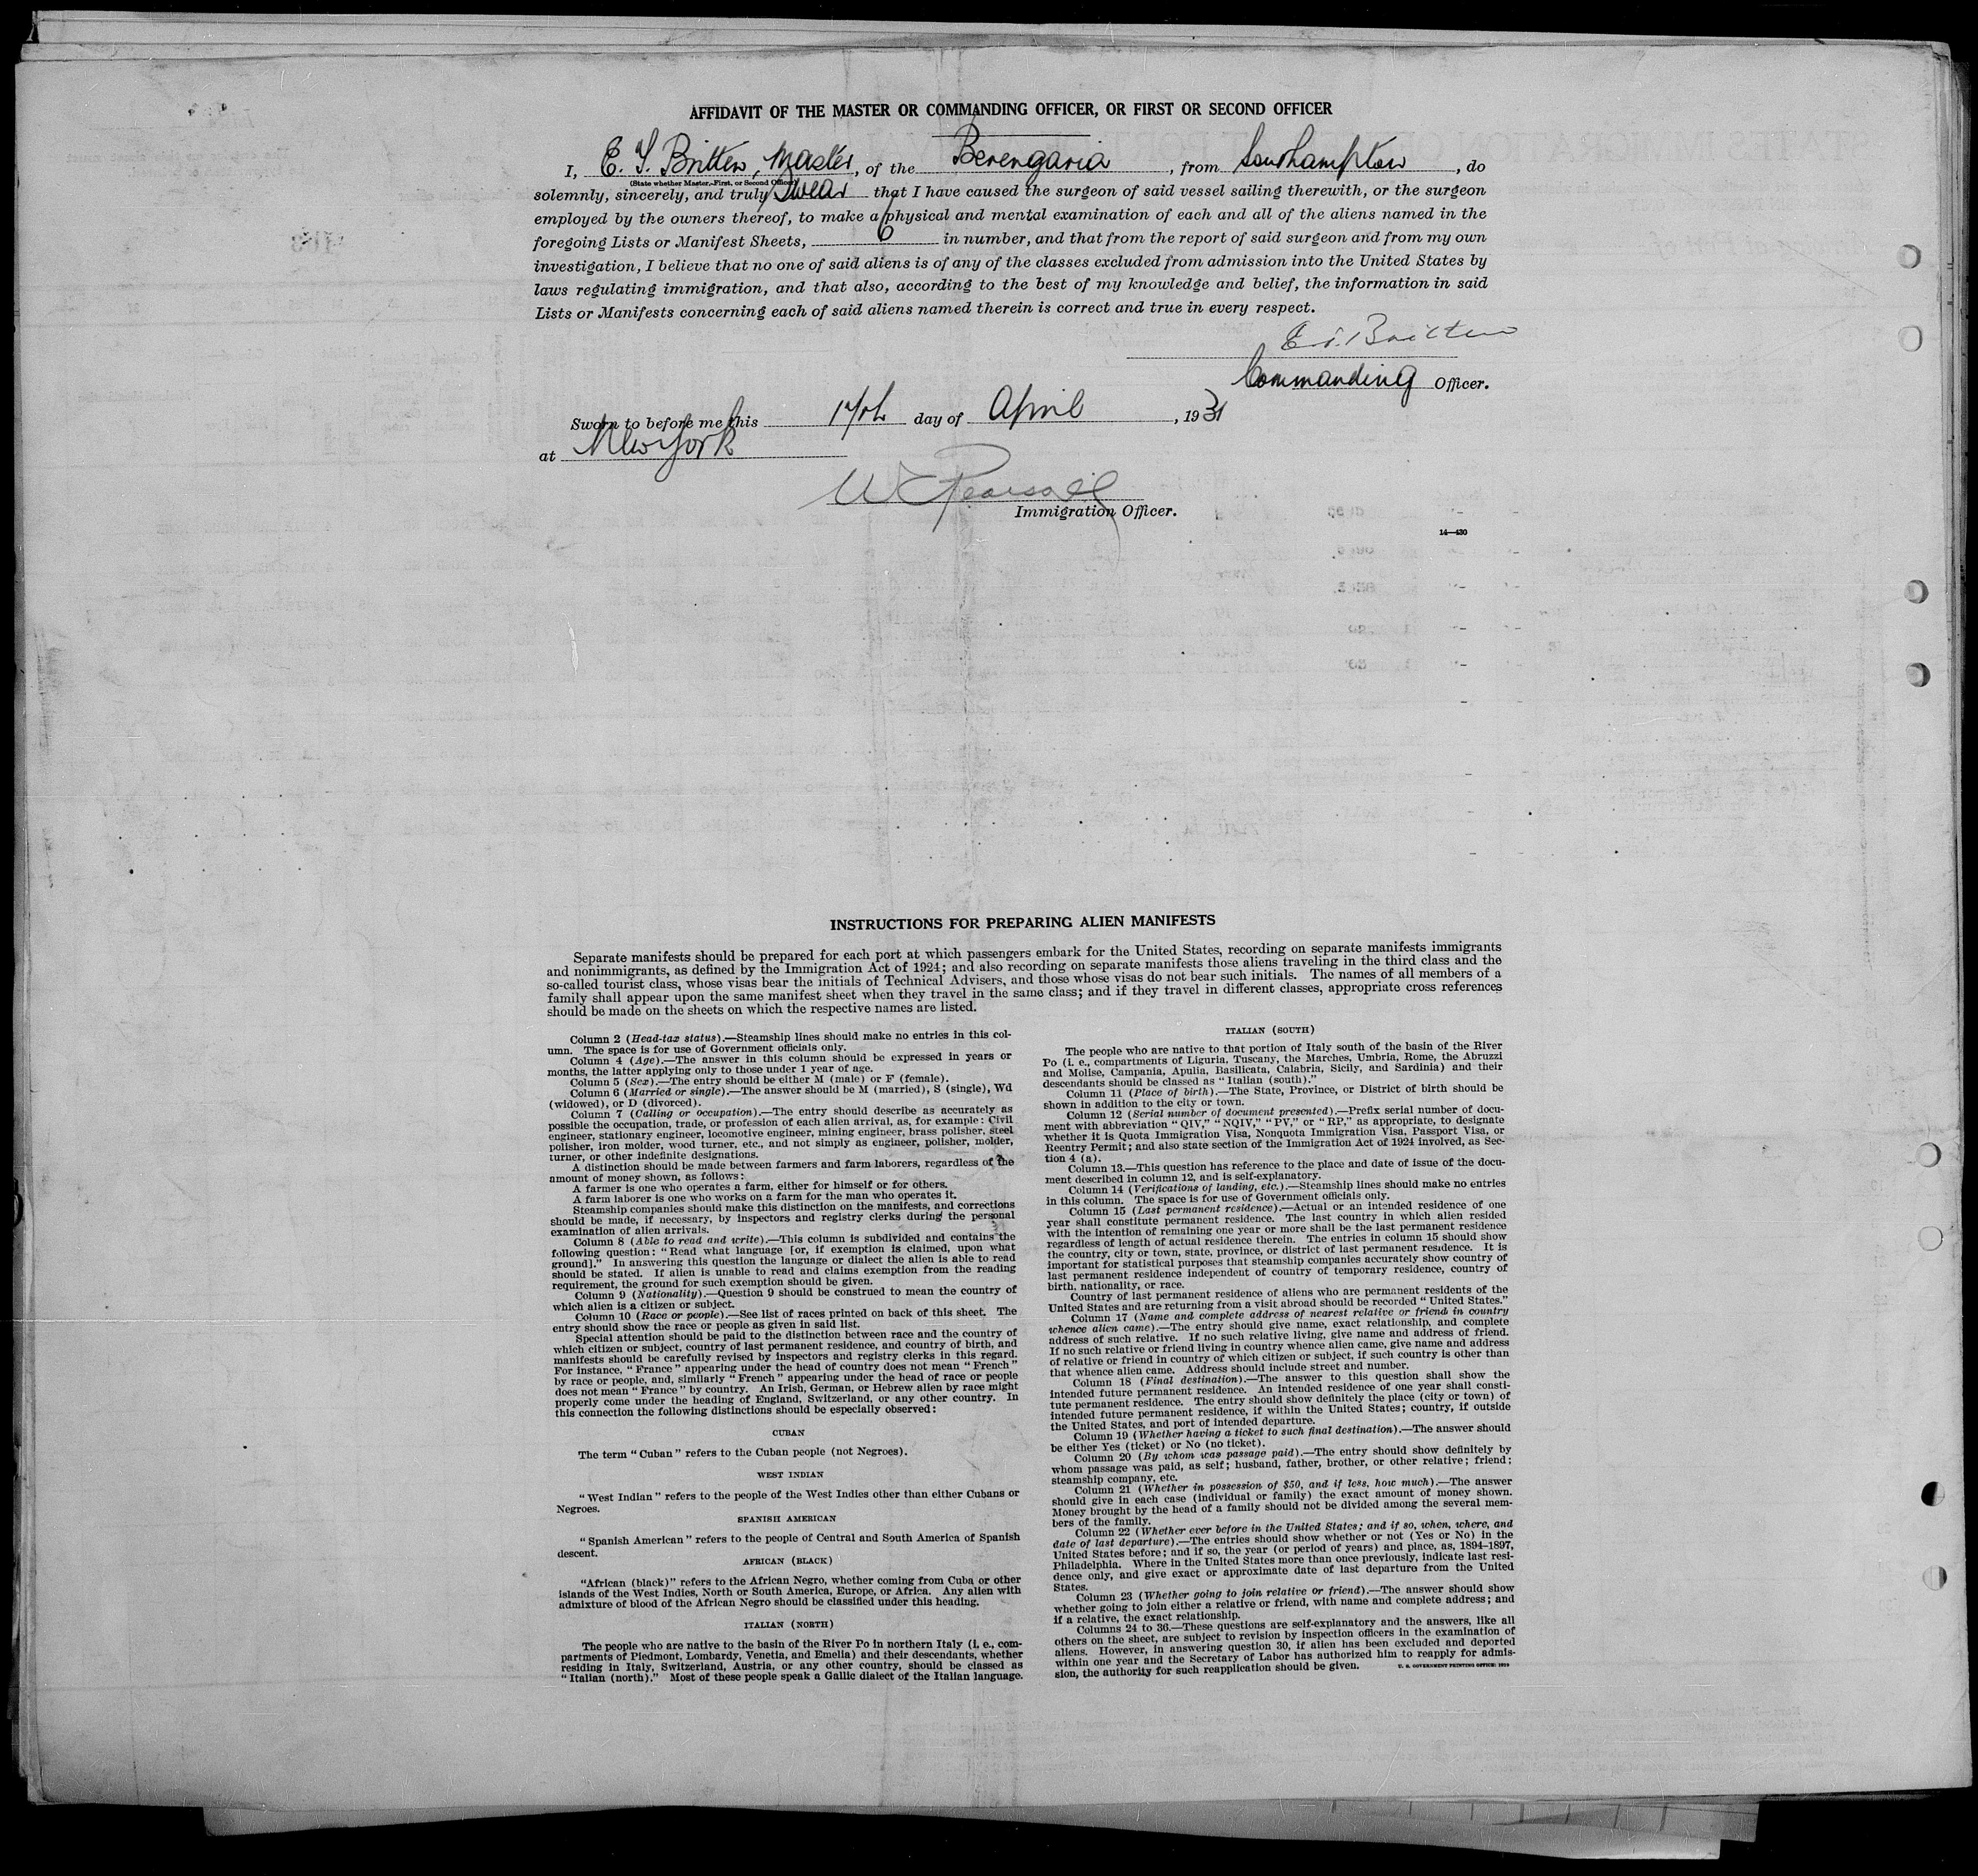 AFFIDAVIT OF THE MASTER OR COMMANDING OFFICER, OR FIRST OR SECOND OFFICER
I, E. T. Britten, Master, of the Berengaria, from Southampton, do
(State whether Master, First, or Second Officer)
solemnly, sincerely, and truly Swear that I have caused the surgeon of said vessel sailing therewith, or the surgeon
employed by the owners thereof, to make a physical and mental examination of each and all of the aliens named in the
foregoing Lists or Manifest Sheets, 6 in number, and that from the report of said surgeon and from my own
investigation, I believe that no one of said aliens is of any of the classes excluded from admission into the United States by
laws regulating immigration, and that also, according to the best of my knowledge and belief, the information in said
Lists or Manifests concerning each of said aliens named therein is correct and true in every respect.
E. T. Britten
Commanding Officer.
Sworn to before me this 17th day of April, 1931
at New York
W Pearsall
Immigration Officer.
14—430
INSTRUCTIONS FOR PREPARING ALIEN MANIFESTS
Separate manifests should be prepared for each port at which passengers embark for the United States, recording on separate manifests immigrants
and nonimmigrants, as defined by the Immigration Act of 1924; and also recording on separate manifests those aliens traveling in the third class and the
so-called tourist class, whose visas bear the initials of Technical Advisers, and those whose visas do not bear such initials. The names of all members of a
family shall appear upon the same manifest sheet when they travel in the same class; and if they travel in different classes, appropriate cross references
should be made on the sheets on which the respective names are listed.
Column 2 (Head-tax status).—Steamship lines should make no entries in this col-
umn. The space is for use of Government officials only.
Column 4 (Age).—The answer in this column should be expressed in years or
months, the latter applying only to those under 1 year of age.
Column 5 (Sex).—The entry should be either M (male) or F (female).
Column 6 (Married or single).—The answer should be M (married), S (single), Wd
(widowed), or D (divorced).
Column 7 (Calling or occupation).—The entry should describe as accurately as
possible the occupation, trade, or profession of each alien arrival, as, for example: Civil
engineer, stationary engineer, locomotive engineer, mining engineer, brass polisher, steel
polisher, iron molder, wood turner, etc., and not simply as engineer, polisher, molder,
turner, or other indefinite designations.
A distinction should be made between farmers and farm laborers, regardless of the
amount of money shown, as follows:
A farmer is one who operates a farm, either for himself or for others.
A farm laborer is one who works on a farm for the man who operates it.
Steamship companies should make this distinction on the manifests, and corrections
should be made, if necessary, by inspectors and registry clerks during the personal
examination of alien arrivals.
Column 8 (Able to read and write).—This column is subdivided and contains the
following question: "Read what language [or, if exemption is claimed, upon what
ground]." In answering this question the language or dialect the alien is able to read
should be stated. If alien is unable to read and claims exemption from the reading
requirement, the ground for such exemption should be given.
Column 9 (Nationality).—Question 9 should be construed to mean the country of
which alien is a citizen or subject.
Column 10 (Race or people).—See list of races printed on back of this sheet. The
entry should show the race or people as given in said list.
Special attention should be paid to the distinction between race and the country of
which citizen or subject, country of last permanent residence, and country of birth, and
manifests should be carefully revised by inspectors and registry clerks in this regard.
For instance, "France" appearing under the head of country does not mean "French"
by race or people, and, similarly "French" appearing under the head of race or people
does not mean "France" by country. An Irish, German, or Hebrew alien by race might
properly come under the heading of England, Switzerland, or any other country. In
this connection the following distinctions should be especially observed:
CUBAN
The term "Cuban" refers to the Cuban people (not Negroes).
WEST INDIAN
"West Indian" refers to the people of the West Indies other than either Cubans or
Negroes.
SPANISH AMERICAN
"Spanish American" refers to the people of Central and South America of Spanish
descent.
AFRICAN (BLACK)
"African (black)" refers to the African Negro, whether coming from Cuba or other
islands of the West Indies, North or South America, Europe, or Africa. Any alien with
admixture of blood of the African Negro should be classified under this heading.
ITALIAN (NORTH)
The people who are native to the basin of the River Po in northern Italy (i. e., com-
partments of Piedmont, Lombardy, Venetia, and Emelia) and their descendants, whether
residing in Italy, Switzerland, Austria, or any other country, should be classed as
"Italian (north)." Most of these people speak a Gallic dialect of the Italian language.
ITALIAN (SOUTH)
The people who are native to that portion of Italy south of the basin of the River
Po (i. e., compartments of Liguria, Tuscany, the Marches, Umbria, Rome, the Abruzzi
and Molise, Campania, Apulia, Basilicata, Calabria, Sicily, and Sardinia) and their
descendants should be classed as "Italian (south)."
Column 11 (Place of birth).—The State, Province, or District of birth should be
shown in addition to the city or town.
Column 12 (Serial number of document presented).—Prefix serial number of docu-
ment with abbreviation "QIV," "NQIV," "PV," or "RP," as appropriate, to designate
whether it is Quota Immigration Visa, Nonquota Immigration Visa, Passport Visa, or
Reentry Permit; and also state section of the Immigration Act of 1924 involved, as Sec-
tion 4 (a).
Column 13.—This question has reference to the place and date of issue of the docu-
ment described in column 12, and is self-explanatory.
Column 14 (Verifications of landing, etc.).—Steamship lines should make no entries
in this column. The space is for use of Government officials only.
Column 15 (Last permanent residence).—Actual or an intended residence of one
year shall constitute permanent residence. The last country in which alien resided
with the intention of remaining one year or more shall be the last permanent residence
regardless of length of actual residence therein. The entries in column 15 should show
the country, city or town, state, province, or district of last permanent residence. It is
important for statistical purposes that steamship companies accurately show country of
last permanent residence independent of country of temporary residence, country of
birth, nationality, or race.
Country of last permanent residence of aliens who are permanent residents of the
United States and are returning from a visit abroad should be recorded "United States."
Column 17 (Name and complete address of nearest relative or friend in country
whence alien came).—The entry should give name, exact relationship, and complete
address of such relative. If no such relative living, give name and address of friend.
If no such relative or friend living in country whence alien came, give name and address
of relative or friend in country of which citizen or subject, if such country is other than
that whence alien came. Address should include street and number.
Column 18 (Final destination).—The answer to this question shall show the
intended future permanent residence. An intended residence of one year shall consti-
tute permanent residence. The entry should show definitely the place (city or town) of
intended future permanent residence, if within the United States; country, if outside
the United States, and port of intended departure.
Column 19 (Whether having a ticket to such final destination).—The answer should
be either Yes (ticket) or No (no ticket).
Column 20 (By whom was passage paid).—The entry should show definitely by
whom passage was paid, as self; husband, father, brother, or other relative; friend;
steamship company, etc.
Column 21 (Whether in possession of $50, and if less, how much).—The answer
should give in each case (individual or family) the exact amount of money shown.
Money brought by the head of a family should not be divided among the several mem-
bers of the family.
Column 22 (Whether ever before in the United States; and if so, when, where, and
date of last departure).—The entries should show whether or not (Yes or No) in the
United States before; and if so, the year (or period of years) and place, as, 1894–1897,
Philadelphia. Where in the United States more than once previously, indicate last resi-
dence only, and give exact or approximate date of last departure from the United
States.
Column 23 (Whether going to join relative or friend).—The answer should show
whether going to join either a relative or friend, with name and complete address; and
if a relative, the exact relationship.
Columns 24 to 36.—These questions are self-explanatory and the answers, like all
others on the sheet, are subject to revision by inspection officers in the examination of
aliens. However, in answering question 30, if alien has been excluded and deported
within one year and the Secretary of Labor has authorized him to reapply for admis-
sion, the authority for such reapplication should be given.
U. S. GOVERNMENT PRINTING OFFICE: